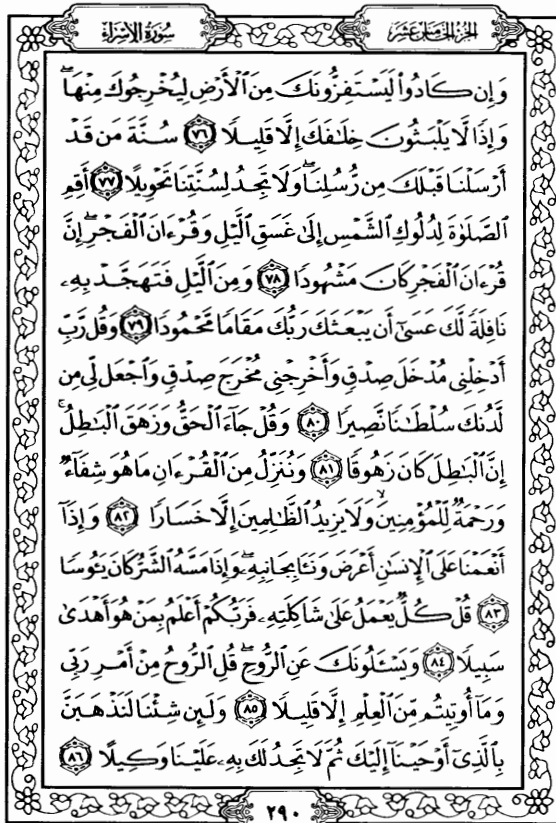 الجزء الخامس عشر
سورة الإسراء
وَإِن كَادُوا۟ لَيَسْتَفِزُّونَكَ مِنَ ٱلْأَرْضِ لِيُخْرِجُوكَ مِنْهَا ۖ
وَإِذًا لَّا يَلْبَثُونَ خِلَٰفَكَ إِلَّا قَلِيلًا ﴿٧٦﴾ سُنَّةَ مَن قَدْ
أَرْسَلْنَا قَبْلَكَ مِن رُّسُلِنَا ۖ وَلَا تَجِدُ لِسُنَّتِنَا تَحْوِيلًا ﴿٧٧﴾ أَقِمِ
ٱلصَّلَوٰةَ لِدُلُوكِ ٱلشَّمْسِ إِلَىٰ غَسَقِ ٱلَّيْلِ وَقُرْءَانَ ٱلْفَجْرِ ۖ إِنَّ
قُرْءَانَ ٱلْفَجْرِ كَانَ مَشْهُودًا ﴿٧٨﴾ وَمِنَ ٱلَّيْلِ فَتَهَجَّدْ بِهِۦ
نَافِلَةً لَّكَ عَسَىٰٓ أَن يَبْعَثَكَ رَبُّكَ مَقَامًا مَّحْمُودًا ﴿٧٩﴾ وَقُل رَّبِّ
أَدْخِلْنِى مُدْخَلَ صِدْقٍ وَأَخْرِجْنِى مُخْرَجَ صِدْقٍ وَٱجْعَل لِّى مِن
لَّدُنكَ سُلْطَٰنًا نَّصِيرًا ﴿٨٠﴾ وَقُلْ جَآءَ ٱلْحَقُّ وَزَهَقَ ٱلْبَٰطِلُ ۚ
إِنَّ ٱلْبَٰطِلَ كَانَ زَهُوقًا ﴿٨١﴾ وَنُنَزِّلُ مِنَ ٱلْقُرْءَانِ مَا هُوَ شِفَآءٌ
وَرَحْمَةٌ لِّلْمُؤْمِنِينَ ۙ وَلَا يَزِيدُ ٱلظَّٰلِمِينَ إِلَّا خَسَارًا ﴿٨٢﴾ وَإِذَآ
أَنْعَمْنَا عَلَى ٱلْإِنسَٰنِ أَعْرَضَ وَنَـَٔا بِجَانِبِهِۦ ۖ وَإِذَا مَسَّهُ ٱلشَّرُّ كَانَ يَـُٔوسًا
﴿٨٣﴾ قُلْ كُلٌّ يَعْمَلُ عَلَىٰ شَاكِلَتِهِۦ فَرَبُّكُمْ أَعْلَمُ بِمَنْ هُوَ أَهْدَىٰ
سَبِيلًا ﴿٨٤﴾ وَيَسْـَٔلُونَكَ عَنِ ٱلرُّوحِ ۖ قُلِ ٱلرُّوحُ مِنْ أَمْرِ رَبِّى
وَمَآ أُوتِيتُم مِّنَ ٱلْعِلْمِ إِلَّا قَلِيلًا ﴿٨٥﴾ وَلَئِن شِئْنَا لَنَذْهَبَنَّ
بِٱلَّذِىٓ أَوْحَيْنَآ إِلَيْكَ ثُمَّ لَا تَجِدُ لَكَ بِهِۦ عَلَيْنَا وَكِيلًا ﴿٨٦﴾
٢٩٠